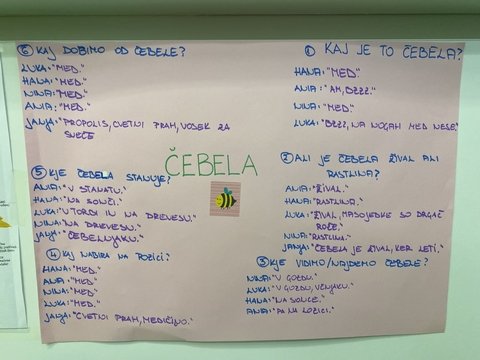 ČEBELA
① KAJ JE TO ČEBELA?
HANA: "MED"
ANIA: "AM, BZZZ."
NINA: "MED."
LUKA: "BZZZ, NA NOGAH MED NESE."
② ALI JE ČEBELA ŽIVAL ALI
RASTLINA?
ANIA: "ŽIVAL."
HANA: "RASTLINA."
LUKA: "ŽIVAL, MESOJEDKE SO DRGAČ
ROŽE."
NINA: "RASTLINA."
JANJA: "ČEBELA JE ŽIVAL, KER LETI."
③ KJE VIDIMO/NAJDEMO ČEBELE?
NINA: "V GOZDU."
LUKA: "V GOZDU, VENJAKU."
HANA: "NA SONCE."
ANIA: "PA NA LOŽICI."
④ KAJ NABIRA NA ROŽICI?
HANA: "MED."
ANIA: "MED"
NINA: "MED"
LUKA: "MED."
JANJA: "CVETNI PRAH, MEDIČINO."
⑤ KJE ČEBELA STANUJE?
ANIA: "V STANATU."
HANA: "NA SONČI."
LUKA: "V TORDI IN NA DREVESU."
NINA: "NA DREVESU."
JANJA: "ČEBELNJAKU."
⑥ KAJ DOBIMO OD ČEBELE?
LUKA: "MED."
HANA: "MED."
NINA: "MED."
ANIA: "MED."
JANJA: "PROPOLIS, CVETNI PRAH, VOSEK ZA
SVEČE